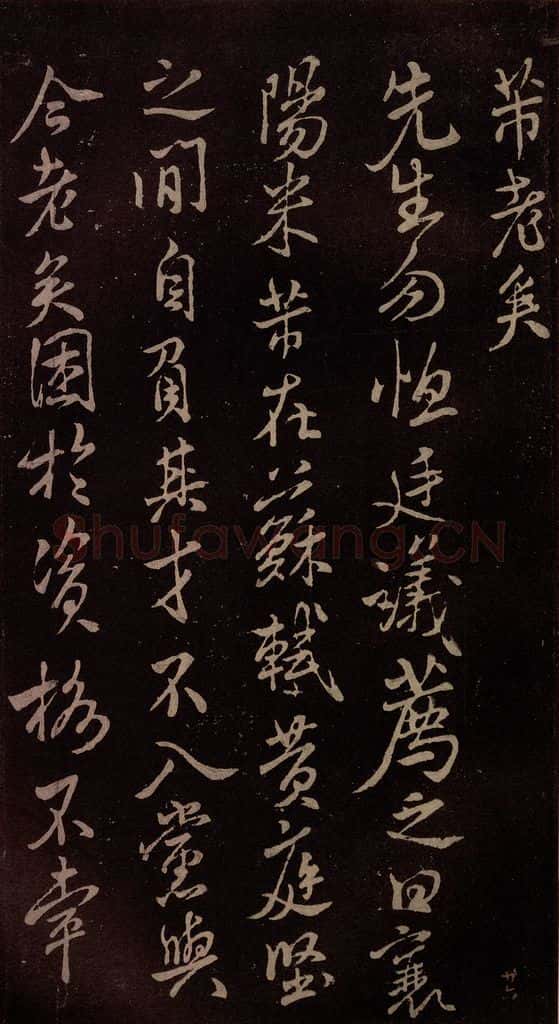 芾老矣
先生勿恤廷議薦之曰襄
陽米芾在蘇軾黄庭堅
之間自負其才不入黨與
今老矣困於資格不幸
廿六
Shufawang.CN